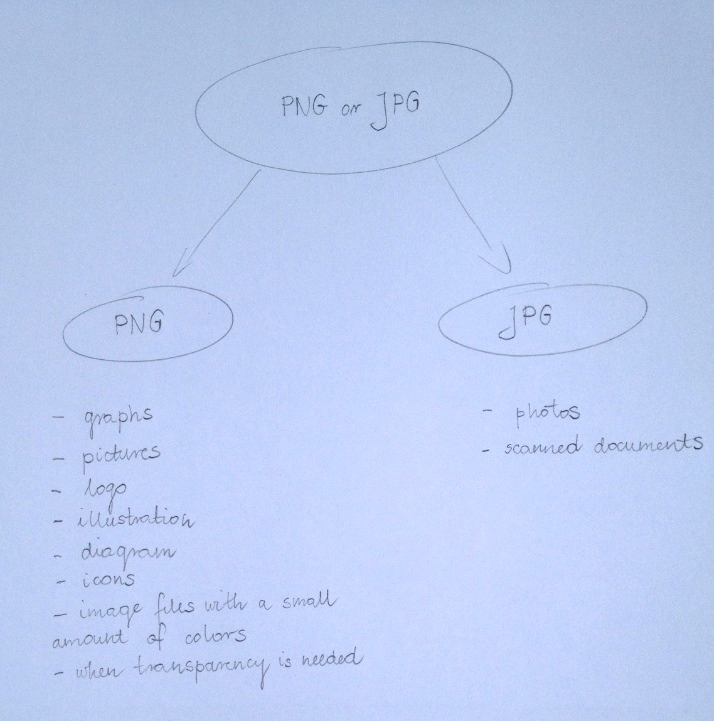 PNG or JPG
PNG
JPG
- graphs
- pictures
- logo
- illustration
- diagram
- icons
- image files with a small
amount of colors
- when transparency is needed
- photos
- scanned documents